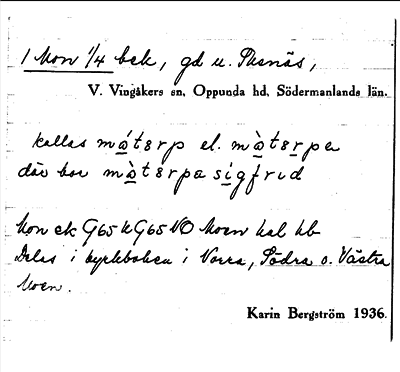 1 Mon 1/4 bek, gd u. Ekenäs,
V. Vingåkers sn, Oppunda hd, Södermanlands län.
kallas måtorp el. måtorpa
där bor måtorpa sigfrid
Mon ek G65 k G65 NO Moen hal kb
Delas i kyrkboken i Norra, Södra o. Västra
Moen.
Karin Bergström 1936.